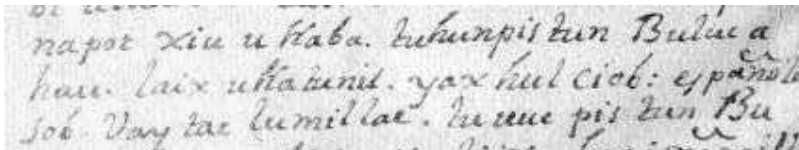 napot xiu u Kaba. tu hunpis tun Buluc a
hau. laix u Katunil. yax hul ciob: español
sob. Vay tac lumil lae. tu uuc pis tun Bu